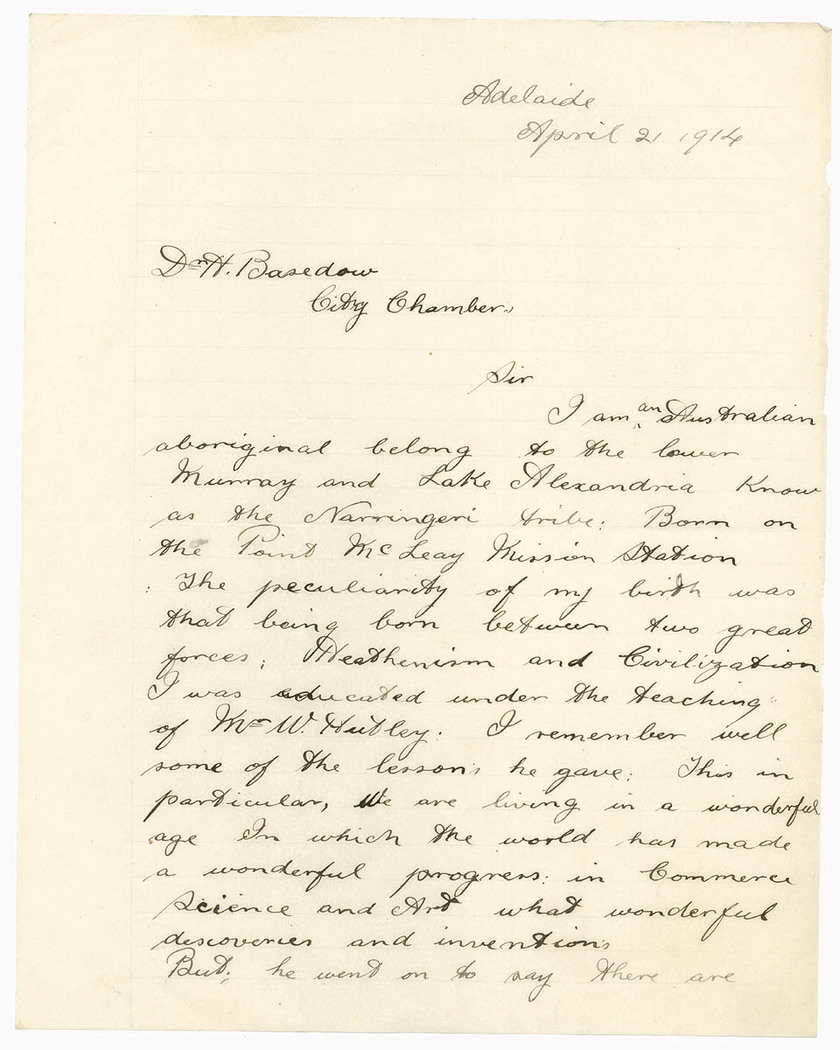 Adelaide
April 21 1914
Dr H. Basedow
City Chambers
Sir
I am an Australian
aboriginal belong to the lower
Murray and Lake Alexandria Know
as the Narringeri tribe: Born on
the Point McLeay Mission Station
: The peculiarity of my birth was
that being born between two great
forces; Heathenism and Civilization
I was educated under the teaching
of Mr W. Hutley: I remember well
some of the lessons he gave: This in
particular, We are living in a wonderful
age In which the world has made
a wonderful progress: in Commerce
Science and Art what wonderful
discoveries and inventions
But; he went on to say there are